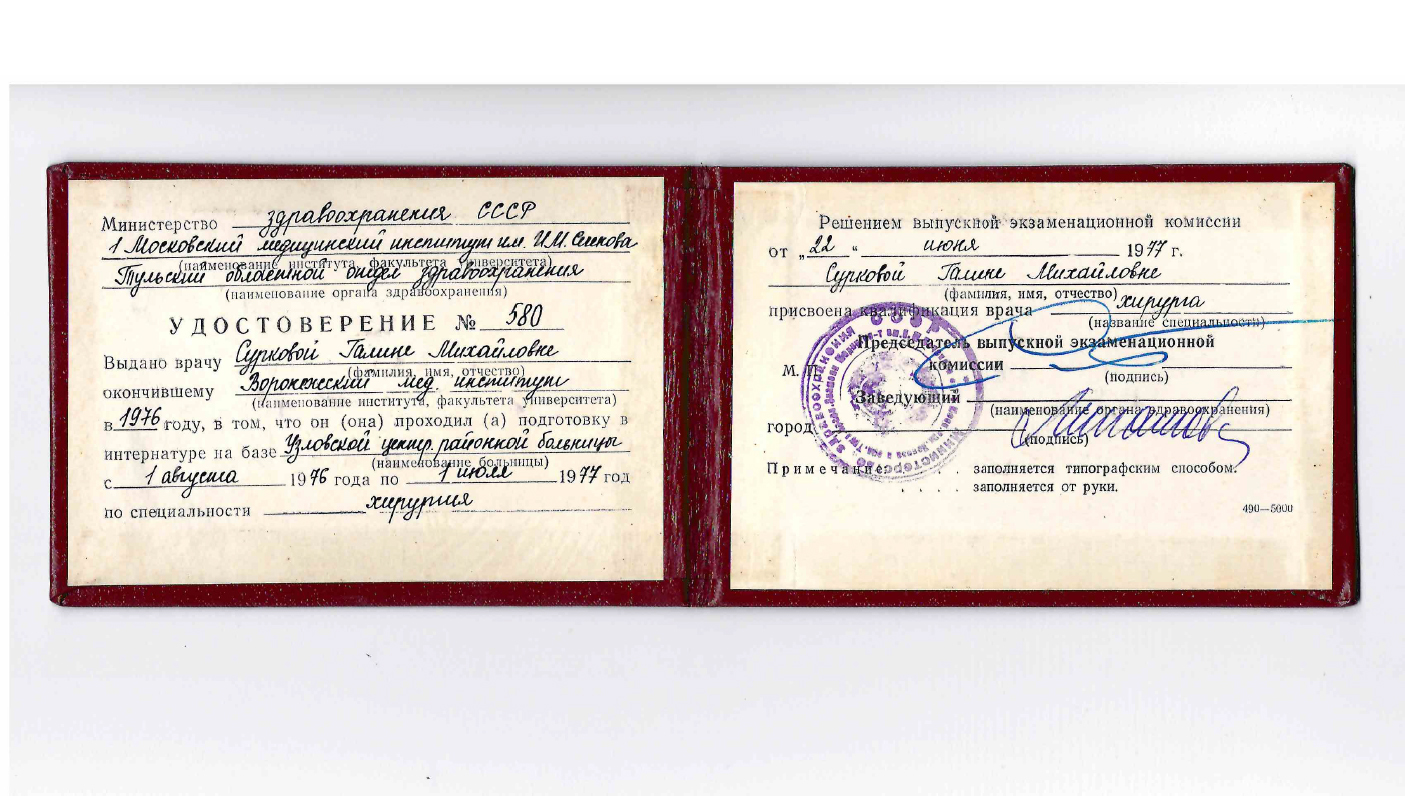 Министерство здравоохранения СССР
1 Московский медицинский институт им. И.М. Сеченова
(наименование института, факультета университета)
Тульский областной отдел здравоохранения
(наименование органа здравоохранения)
УДОСТОВЕРЕНИЕ № 580
Выдано врачу Сурковой Галине Михайловне
(фамилия, имя, отчество)
окончившему Воронежский мед. институт
(наименование института, факультета университета)
в 1976 году, в том, что он (она) проходил (а) подготовку в
интернатуре на базе Узловской центр. районной больницы
(наименование больницы)
с 1 августа 1976 года по 1 июля 1977 год
по специальности хирургия
Решением выпускной экзаменационной комиссии
от „22“ июня 1977 г.
Сурковой Галине Михайловне
(фамилия, имя, отчество)
присвоена квалификация врача хирурга
(название специальности)
Председатель выпускной экзаменационной
М. П. комиссии
(подпись)
Заведующий
(наименование органа здравоохранения)
город
(подпись)
Примечание: . . . . заполняется типографским способом.
. . . . заполняется от руки.
490—5000
Министерство здравоохранения СССР